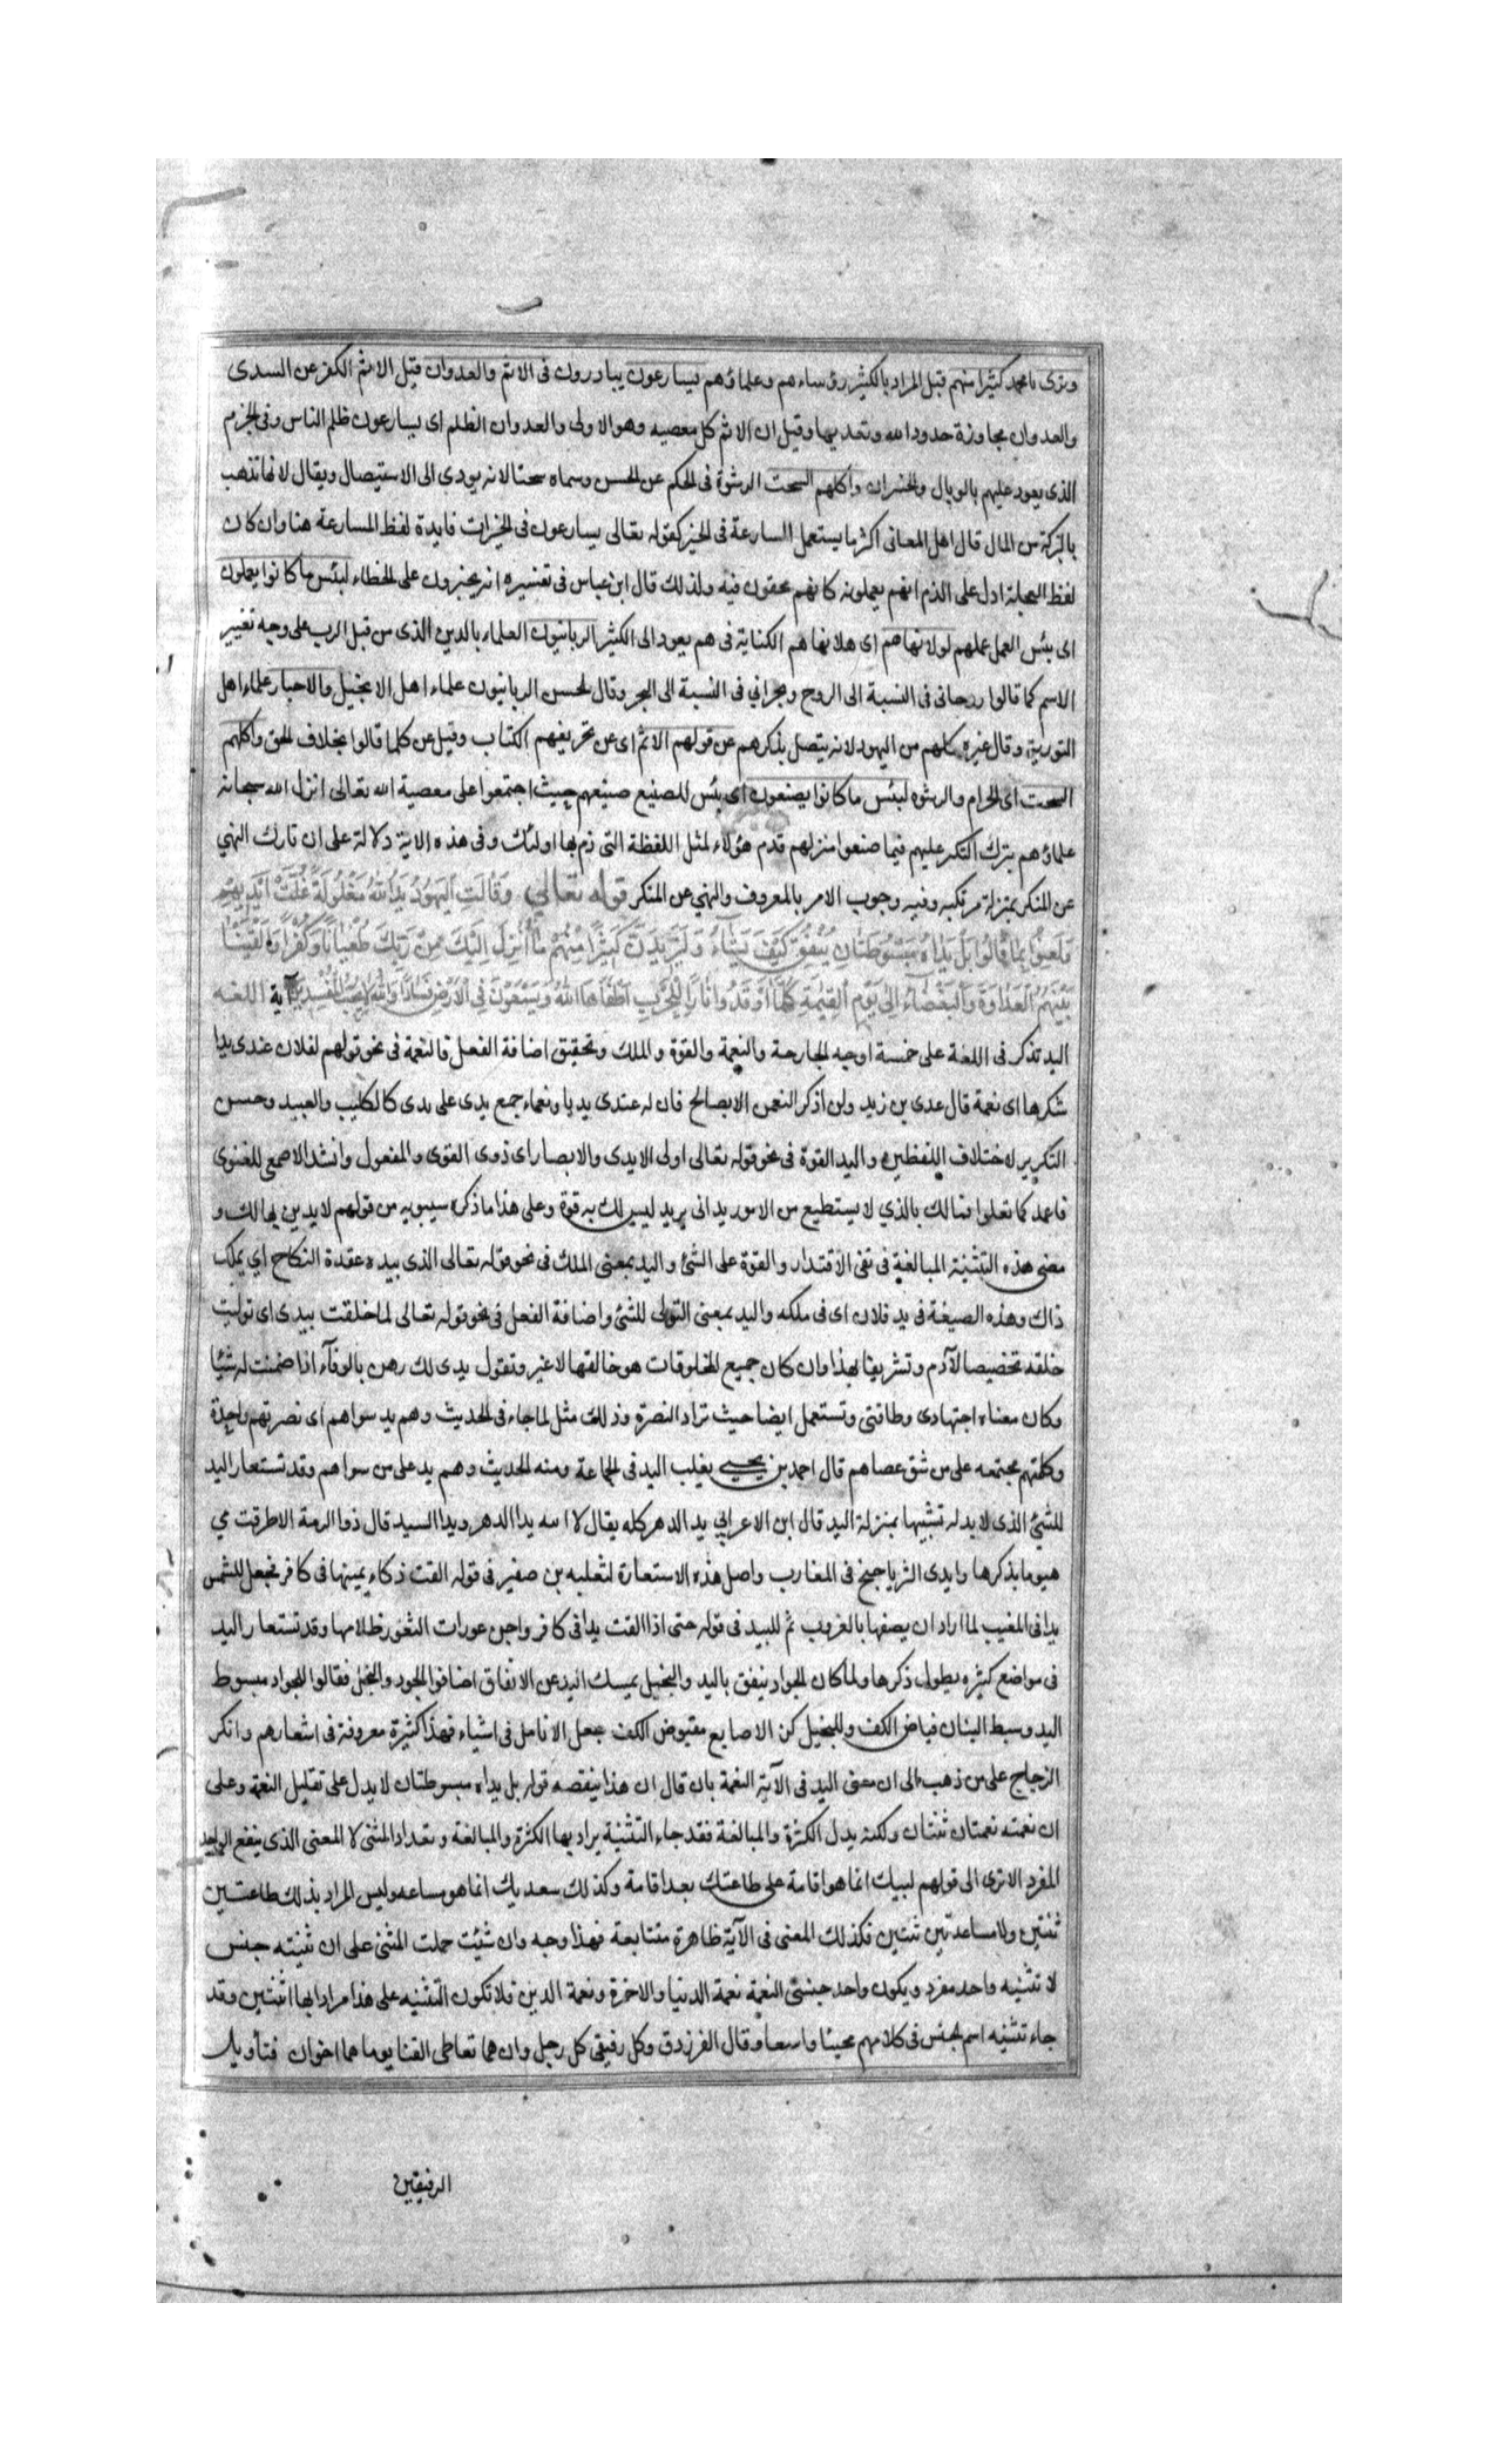 وترى يا محمد كثيرا منهم قيل المراد بالكثير رؤساءهم وعلماؤهم يسارعون يبادرون فى الاثم والعدوان قيل الاثم الكفر عن السدى
والعدوان مجاوزة حدود الله وتعديها وقيل ان الاثم كل معصيه وهو الاولى والعدوان الظلم اى يسارعون ظلم الناس وفى الجرم
الذى يعود عليهم بالوبال والخسران واكلهم السحت الرشوة فى الحكم عن الحسن وسماه سحتا لانه يودى الى الاستيصال ويقال لانها تذهب
بالبركة من المال قال اهل المعانى اكثر ما يستعمل المسارعة فى الخير كقوله تعالى يسارعون فى الخيرات فايدة لفظ المسارعة هنا وان كان
لفظ العجلة ادل على الذم انهم يعملونه كانهم محقون فيه ولذلك قال ابن عباس فى تفسيره انهم يجترون على الخطاء لبئس ما كانوا يعملون
اى بئس العمل عملهم لولا ينهاهم اى هلا ينهاهم الكناية فى هم يعود الى الكثير الربانيون العلماء بالدين الذى من قبل الرب على وجه تغيير
الاسم كما قالوا روحانى فى النسبة الى الروح وبحراني فى النسبة الى البحر وقال الحسن الربانيون علماء اهل الانجيل والاحبار علماء اهل
التورية وقال غيره كلهم من اليهود لانه يتصل بذكرهم عن قولهم الاثم اى عن تحريفهم الكتاب وقيل عن كلما قالوا بخلاف الحق واكلهم
السحت اى الحرام والرشوه لبئس ما كانوا يصنعون اى بئس الصنيع صنيعهم حيث اجتمعوا على معصية الله تعالى انزل الله سبحانه
علماؤهم بترك النكر عليهم فيما صنعوا منزلهم قدم هؤلاء لمثل اللفظة التى ذم بها اولئك وفى هذه الاية دلالة على ان تارك النهي
عن المنكر بمنزلة مرتكبه وفيه وجوب الامر بالمعروف والنهي عن المنكر قوله تعالي وَقَالَتِ الْيَهُودُ يَدُ اللّٰهِ مَغْلُولَةٌ غُلَّتْ اَيْدِيهِمْ
وَلُعِنُوا بِمَا قَالُوا بَلْ يَدَاهُ مَبْسُوطَتَانِ يُنْفِقُ كَيْفَ يَشَاءُ وَلَيَزِيدَنَّ كَثِيرًا مِنْهُمْ مَا اُنْزِلَ اِلَيْكَ مِنْ رَبِّكَ طُغْيَانًا وَكُفْرًا وَاَلْقَيْنَا
بَيْنَهُمُ الْعَدَاوَةَ وَالْبَغْضَاءَ اِلىٰ يَوْمِ الْقِيٰمَةِ كُلَّمَا اَوْقَدُوا نَارًا لِلْحَرْبِ اَطْفَأَهَا اللهُ وَيَسْعَوْنَ فِي الْاَرْضِ فَسَادًا وَاللهُ لَا يُحِبُّ الْمُفْسِدِينَ آية اللغه
اليد تذكر فى اللغة على خمسة اوجه الجارحة والنعمة والقوة والملك وتحقيق اضافة الفعل فالنعمة فى نحو قولهم لفلان عندى يدا
شكرها اى نعمة قال عدى بن زيد ولن اذكر النعمن الا بصالح فان له عندى يديا ونعماء جمع يدى على يدى كالكليب والعبيد وحسن
التكرير لاختلاف اللفظين واليد القوة فى نحو قوله تعالى اولى الايدى والابصار اى ذوى القوى والمفعول وانشد الاصمعى للغنوى
فاعمد كما تعلوا فمالك بالذي لا يستطيع من الامور يدانى يريد ليس لك به قوة وعلى هذا ما ذكره سيبويه من قولهم لا يدين بها لك و
معنى هذه التثنية المبالغة فى نفى الاقتدار والقوة على الشئ واليد بمعنى الملك فى نحو قوله تعالى الذى بيده عقدة النكاح اي يملك
ذاك وهذه الصيغة فى يد فلان اى فى ملكه واليد بمعنى التولى للشئ واضافة الفعل فى نحو قوله تعالى لما خلقت بيدى اى توليت
خلقه تخصيصا لآدم وتشريفا بهذا وان كان جميع المخلوقات هو خالقها لا غير وتقول يدى لك رهن بالوفآء اذا ضمنت له شيئا
وكان معناه اجتهادى وطاقتى وتستعمل ايضا حيث تراد النصرة وذلك مثل لما جاء فى الحديث وهم يد سواهم اى نصرتهم واحدة
وكلمتهم مجتمعه على من شق عصاهم قال احمد بن يحيى يغلب اليد فى الجماعة ومنه الحديث وهم يد على من سواهم وقد تستعار اليد
للشئ الذى لا يد له تشبيها بمنزلة اليد قال ابن الاعرابي يد الدهر كله يقال لا اسه يدا الدهر ويدا السيد قال ذوا الرمة الا طرقت مي
هيوما بذكرها وايدى الثريا جنح فى المغارب واصل هذه الاستعارة لثعلبه بن صغير فى قوله القت ذكاء يمينها فى كافر فجعل للشمس
يدا فى المغيب لما اراد ان يصفها بالغروب ثم للبيد فى قوله حتى اذا القت يدا فى كافر واجن عورات الثغور ظلامها وقد تستعار اليد
فى مواضع كثيره يطول ذكرها ولما كان الجواد ينفق باليد والبخيل يمسك اليد عن الانفاق اضافوا الجود والبخل فقالوا للجواد مبسوط
اليد وسبط البنان فياض الكف وللبخيل كز الاصابع مقبوض الكف جعل الانامل فى اشياء فهذا كثيرة معروفة فى اشعارهم وانكر
الزجاج على من ذهب الى ان معنى اليد فى الآية النعمة بان قال ان هذا ينقصه قوله بل يداه مبسوطتان لا يدل على تقليل النعمة وعلى
ان نعمته نعمتان ثنتان ولكنه يدل الكثرة والمبالغة فقد جاء التثنية يراد بها الكثرة والمبالغة وتعداد المثنى لا المعنى الذى ينفع الواحد
المفرد الا ترى الى قولهم لبيك انما هو اقامة على طاعتك بعد اقامة وكذلك سعديك انما هو مساعده وليس المراد بذلك طاعتين
ثنتين ولا مساعدتين ثنتين فكذلك المعنى فى الآية ظاهرة متتابعة فهذا وجه وان شئت حملت المثنى على ان تثنيته جنس
لا تثنيه واحد مفرد ويكون واحد جنسى النعمة نعمة الدنيا والاخرة ونعمة الدين فلا تكون التثنيه على هذا مرادا بها اثنتين وقد
جاء تثنيه اسم الجنس فى كلامهم مجيئا واسعا وقال الفرزدق وكل رفيقى كل رجل وان هما تعاطى القنا يوما هما اخوان فتأويل
الرفيقين